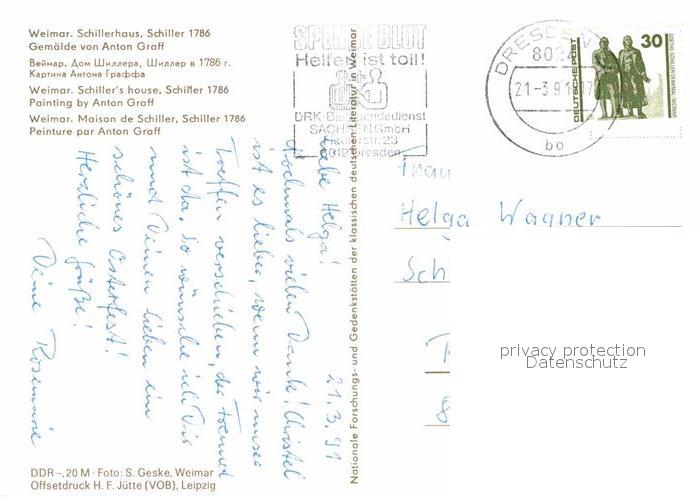 Weimar. Schillerhaus, Schiller 1786
Gemälde von Anton Graff
Веймар. Дом Шиллера, Шиллер в 1786 г.
Картина Антона Граффа
Weimar. Schiller's house, Schiller 1786
Painting by Anton Graff
Weimar. Maison de Schiller, Schiller 1786
Peinture par Anton Graff
21.3.91
Liebe Helga!
Nochmals vielen Dank! Christel
ist es lieber, wenn wir unser
Treffen verschieben, der Freund
ist da. So wünsche ich Dir
und Deinen Lieben ein
schönes Osterfest!
Herzliche Grüße!
Deine Rosemarie
DDR -,20 M · Foto: S. Geske, Weimar
Offsetdruck H. F. Jütte (VOB), Leipzig
Nationale Forschungs- und Gedenkstätten der klassischen deutschen Literatur in Weimar
SPENDE BLUT
Helfen ist toll!
DRK Blutspendedienst
SACHSEN GmbH
DRESDEN
21-3.91
bo
30
DEUTSCHE POST
Frau
Helga Wagner
Sch
8
privacy protection
Datenschutz